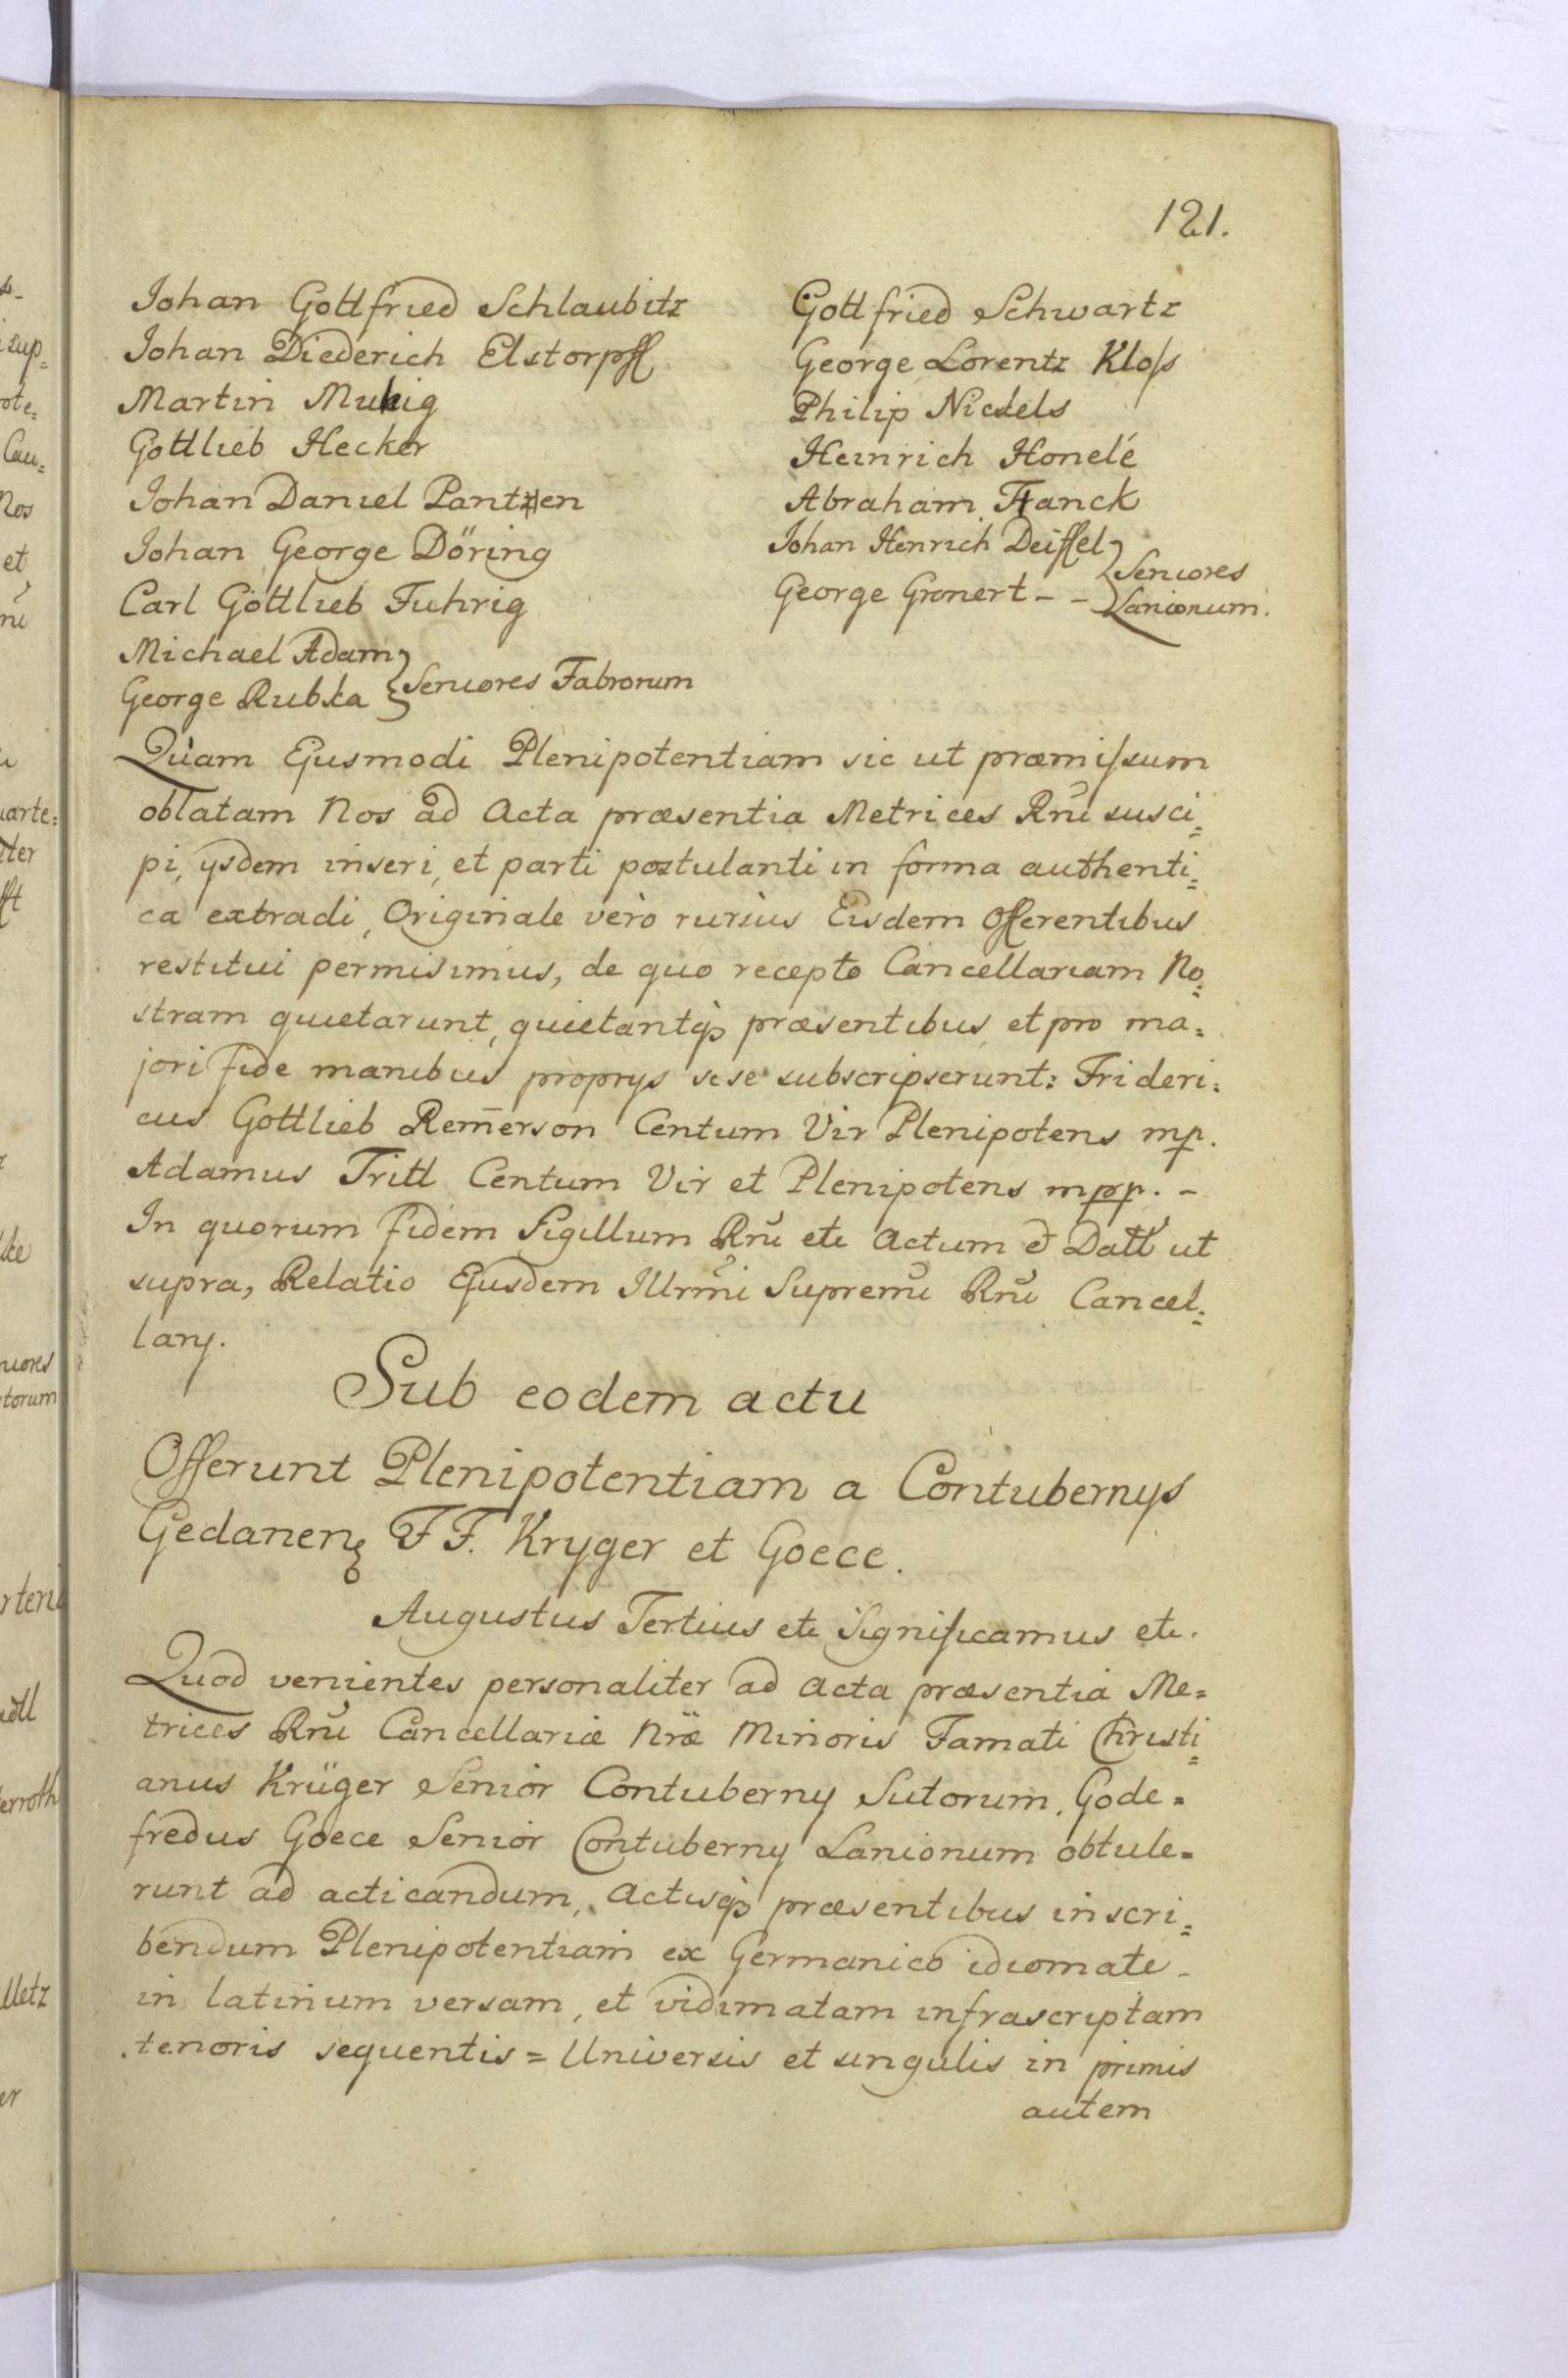 121.
Johan Gottfried Schlaubitz
Johan Diederich Elstorpff
Martin Muhig
Gottlieb Hecker
Johan Daniel Pantzen
Johan George Döring
Carl Gottlieb Fuhrig
Michael Adam
George Rubka } Seniores Fabrorum
Gottfried Schwartz
George Lorentz Kloſs
Philip Nickels
Heinrich Honelé
Abraham Franck
Johan Henrich Deiffel
George Gronert - - } Seniores Lanionum.
Quam Ejusmodi Plenipotentiam sic ut præmiſsum
oblatam Nos ad Acta præsentia Metrices Rnĩ susci=
pi, ijsdem inseri, et parti postulanti in forma authenti=
ca extradi, Originale verò rursus Eisdem Offerentibus
restitui permisimus, de quo recepto Cancellariam No=
stram quietarunt, quietantq; præsentibus, et pro ma=
jori fide manibus proprijs sese subscripserunt: Frideri=
cus Gottlieb Rem̄erson Centum Vir Plenipotens mp.
Adamus Tritt Centum Vir et Plenipotens mpp. -
In quorum fidem Sigillum Rnĩ etc Actum et Datt ut
supra, Relatio Ejusdem Illrmi Supremi Rnĩ Cancel=
larij.
Sub eodem actu
Offerunt Plenipotentiam a Contubernijs
Gedanen FF. Kryger et Goece.
Augustus Tertius etc Significamus etc.
Quod venientes personaliter ad Acta præsentia Me=
trices Rnĩ Cancellariæ Nræ Minoris Famati Christi=
anus Krüger Senior Contubernij Sutorum, Gode=
fredus Goece Senior Contubernij Lanionum obtule=
runt ad acticandum, Actisq; præsentibus inscri=
bendum Plenipotentiam ex Germanico idiomate
in latinum versam, et vidimatam infrascriptam
tenoris sequentis = Universis et singulis in primis
autem